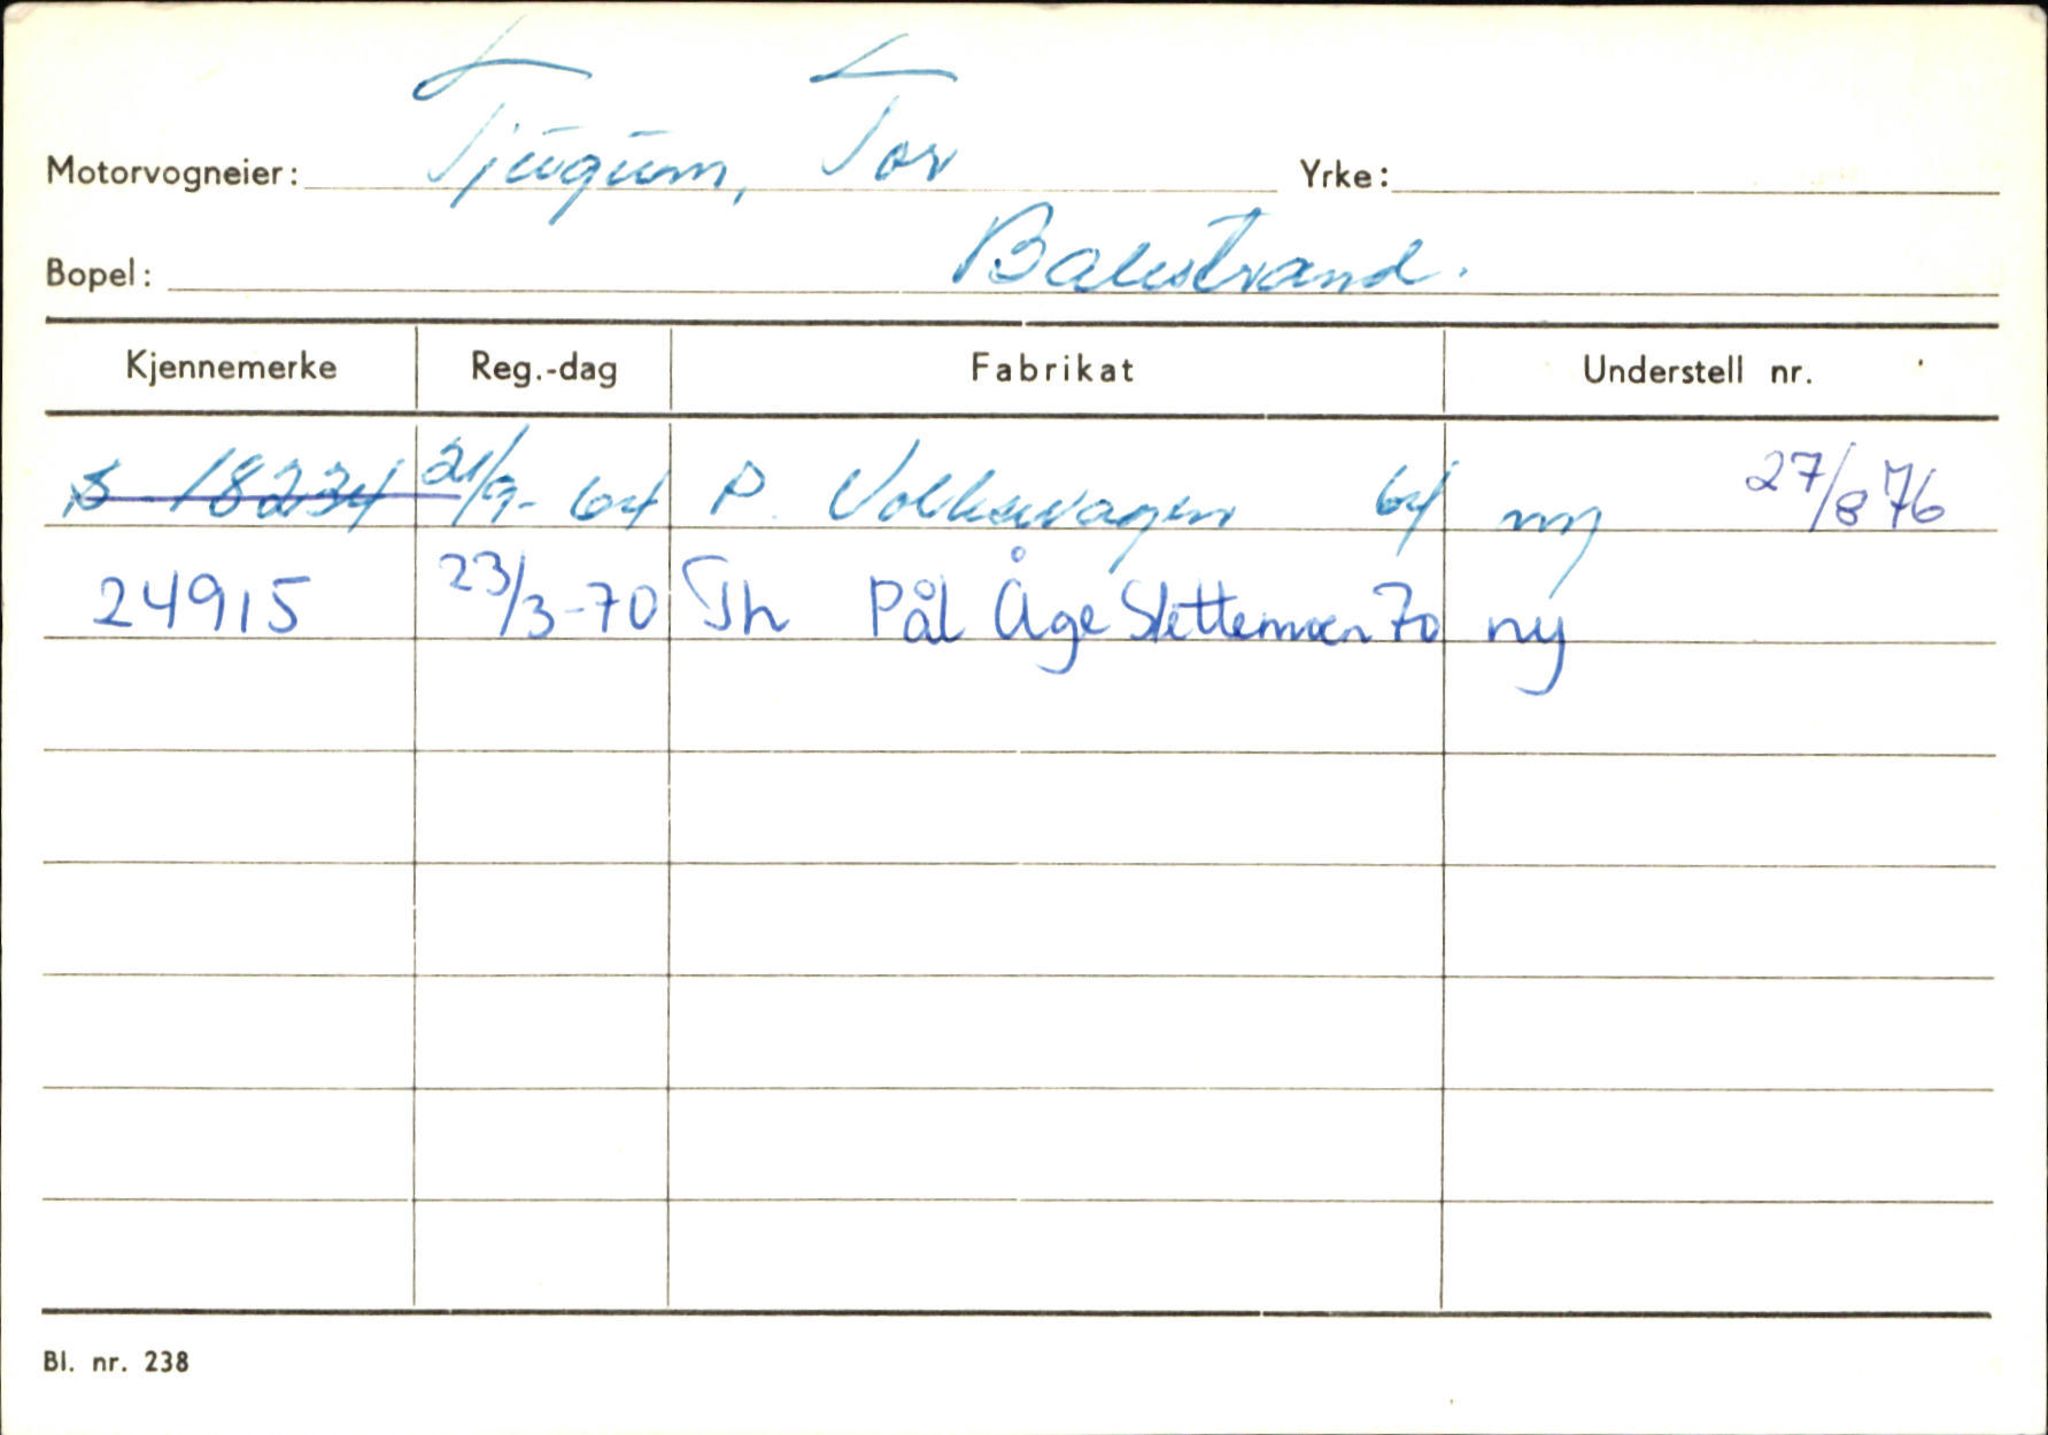 Motorvogneier: Tjugum, Tor Yrke:
Bopel: Balestrand.
Kjennemerke Reg.-dag Fabrikat Understell nr.
S 18234 21/9-64 P. Volkswagen 64 ny 27/8 76
24915 23/3-70 Th Pål Åge Slettemoen 70 ny
Bl. nr. 238